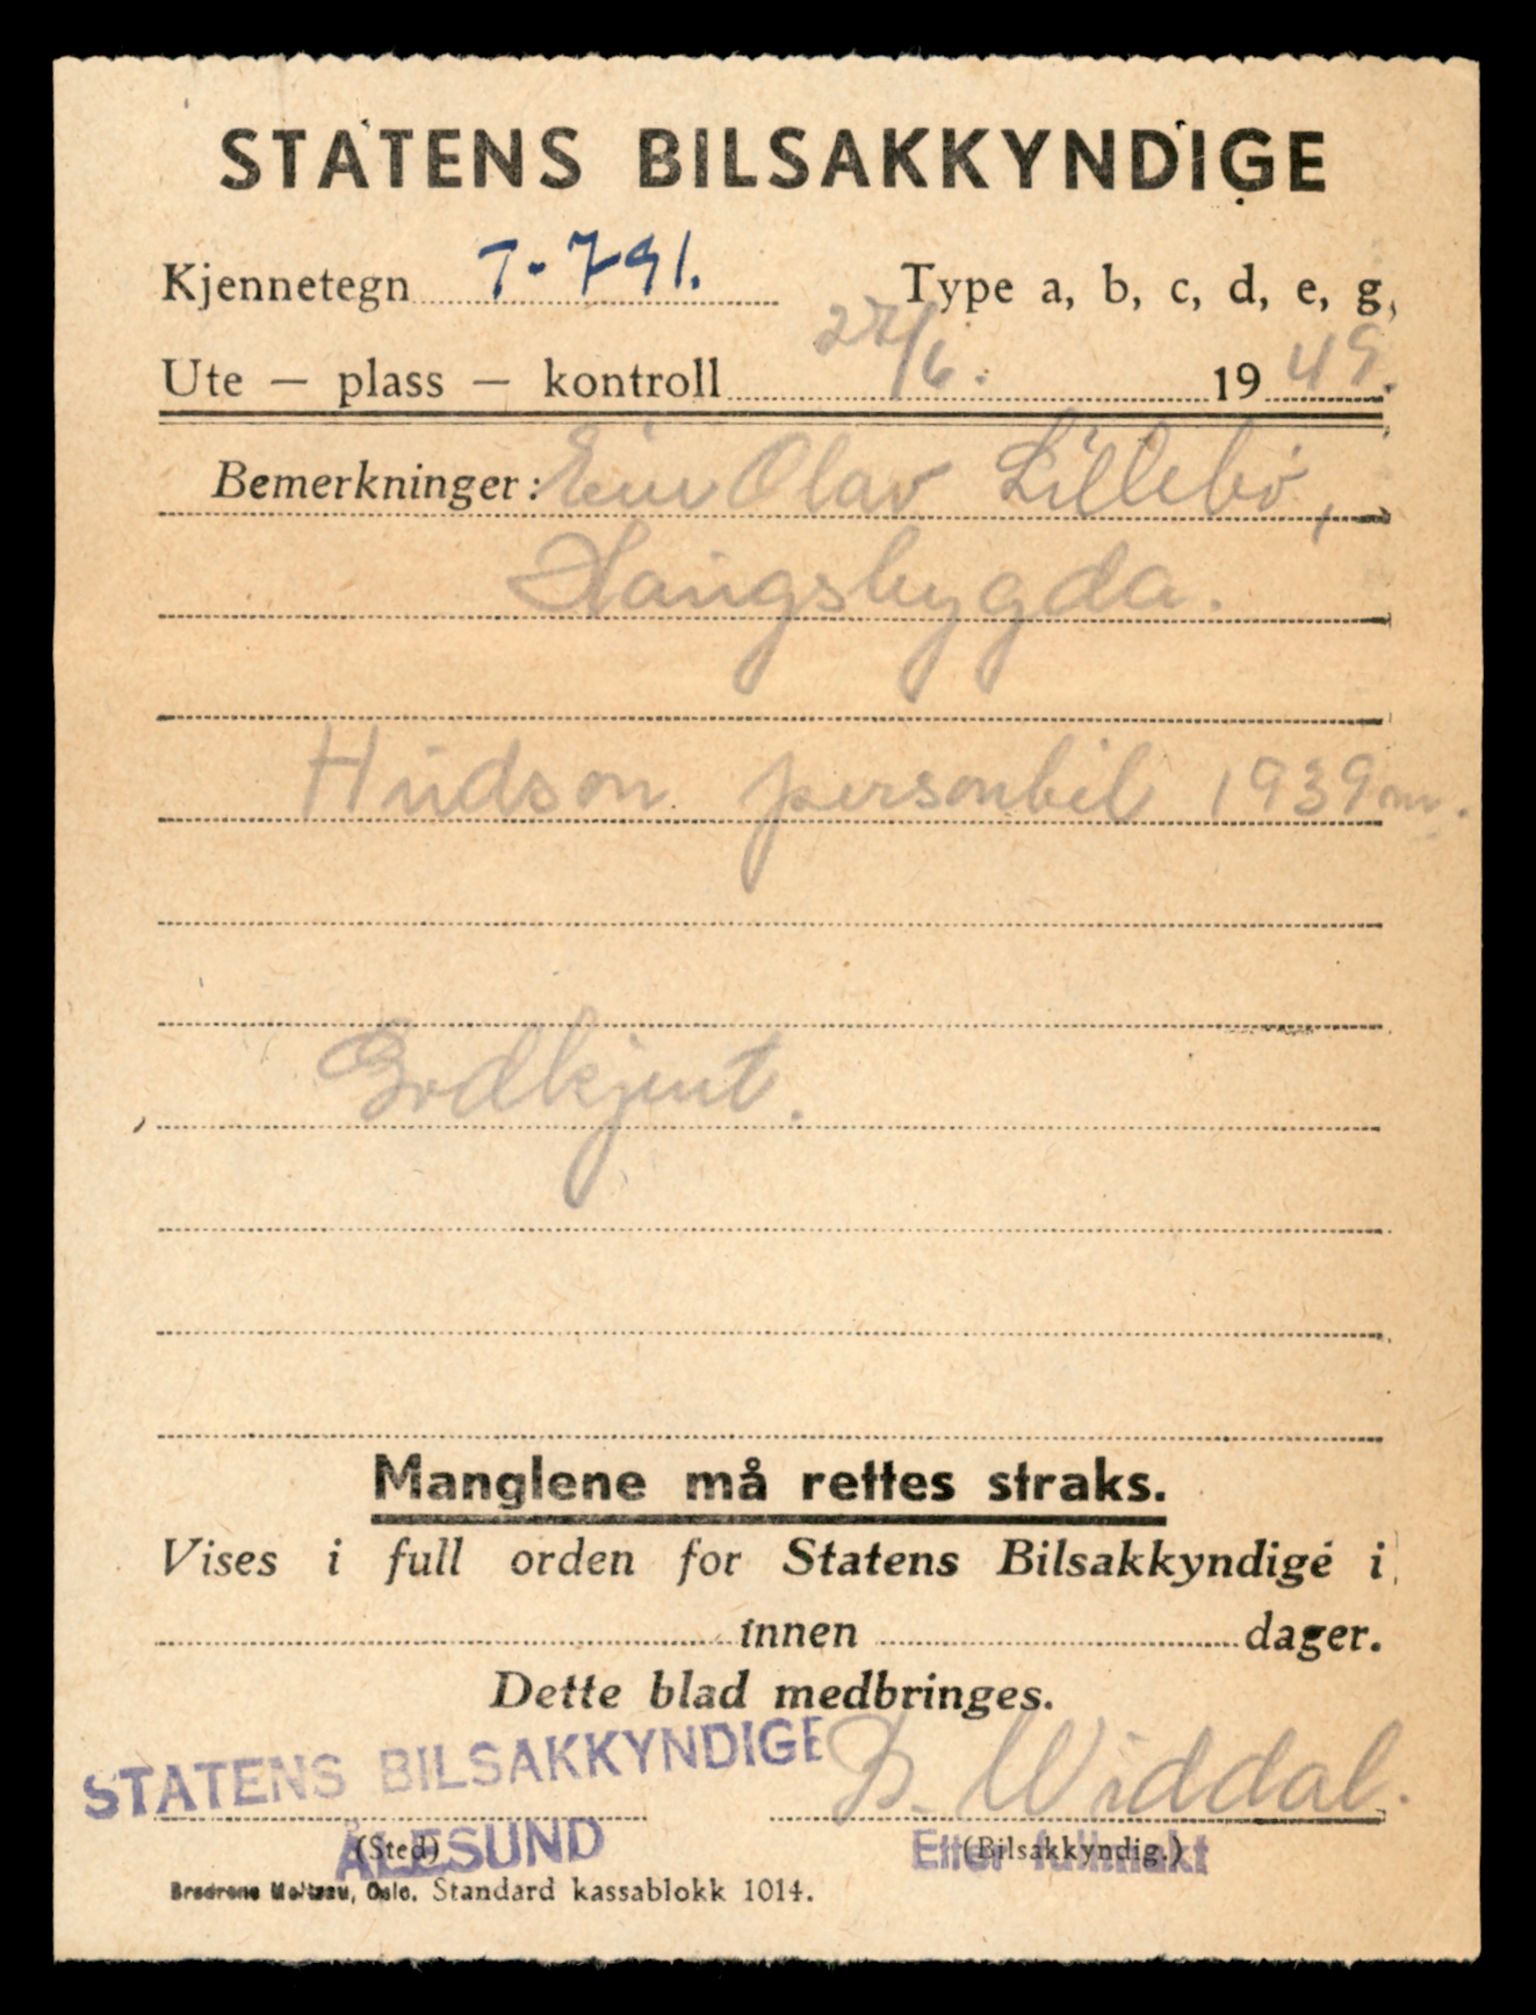 STATENS BILSAKKYNDIGE
Kjennetegn T-791. Type a, b, c, d, e, g,
Ute — plass — kontroll 27/6. 1949.
Bemerkninger: Eier Olav Lillebø,
Langsbygda.
Hudson personbil 1939 m.
Godkjent.
Manglene må rettes straks.
Vises i full orden for Statens Bilsakkyndige i
innen dager.
Dette blad medbringes.
STATENS BILSAKKYNDIGE Widdal.
ÅLESUND
(Sted) (Bilsakkyndig.)
Etter fullmakt
Brødrene Moltzau, Oslo. Standard kassablokk 1014.